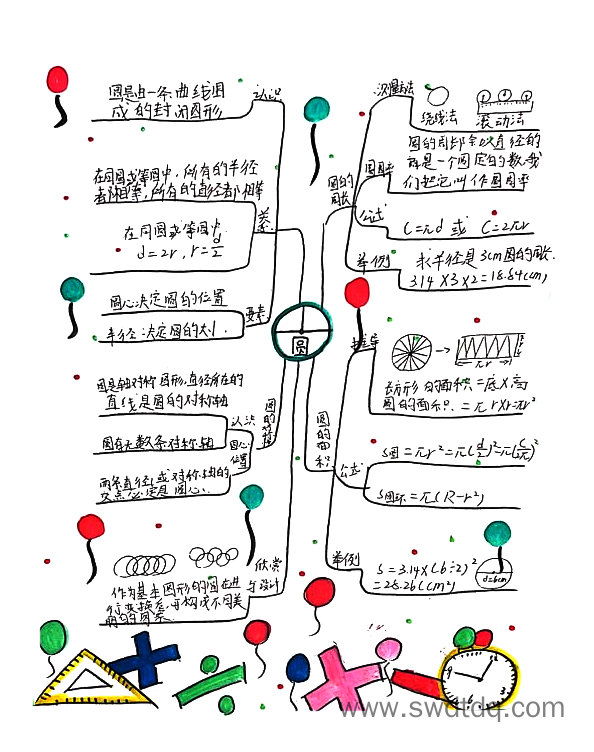 圆
认识
圆是由一条曲线围
成的封闭图形
关系
在同圆或等圆中，所有的半径
都相等，所有的直径都相等
在同圆或等圆中
d=2r，r=d/2
要素
圆心决定圆的位置
半径决定圆的大小
圆的对称
认识
圆是轴对称图形，直径所在的
直线是圆的对称轴
圆有无数条对称轴
圆心
位置
两条直径或对称轴的
交点必定是圆心.
欣赏
与设计
作为基本图形的圆在进
圆的
周长
测量方法
绕线法
滚动法
圆周率
圆的周长除以直径的
商是一个固定的数，我
们把它叫作圆周率
公式
C=πd 或 C=2πr
举例
求半径是3cm圆的周长
3.14×3×2=18.84(cm)
圆的面积
推导
πr
圆的面积=πr×r=πr²
公式
S圆=πr²=π(d/2)²=π(C/2π)²
S圆环=π(R-r²)
举例
S=3.14×(6÷2)²
=28.26(cm²)
d=6cm
www.swdtdq.com